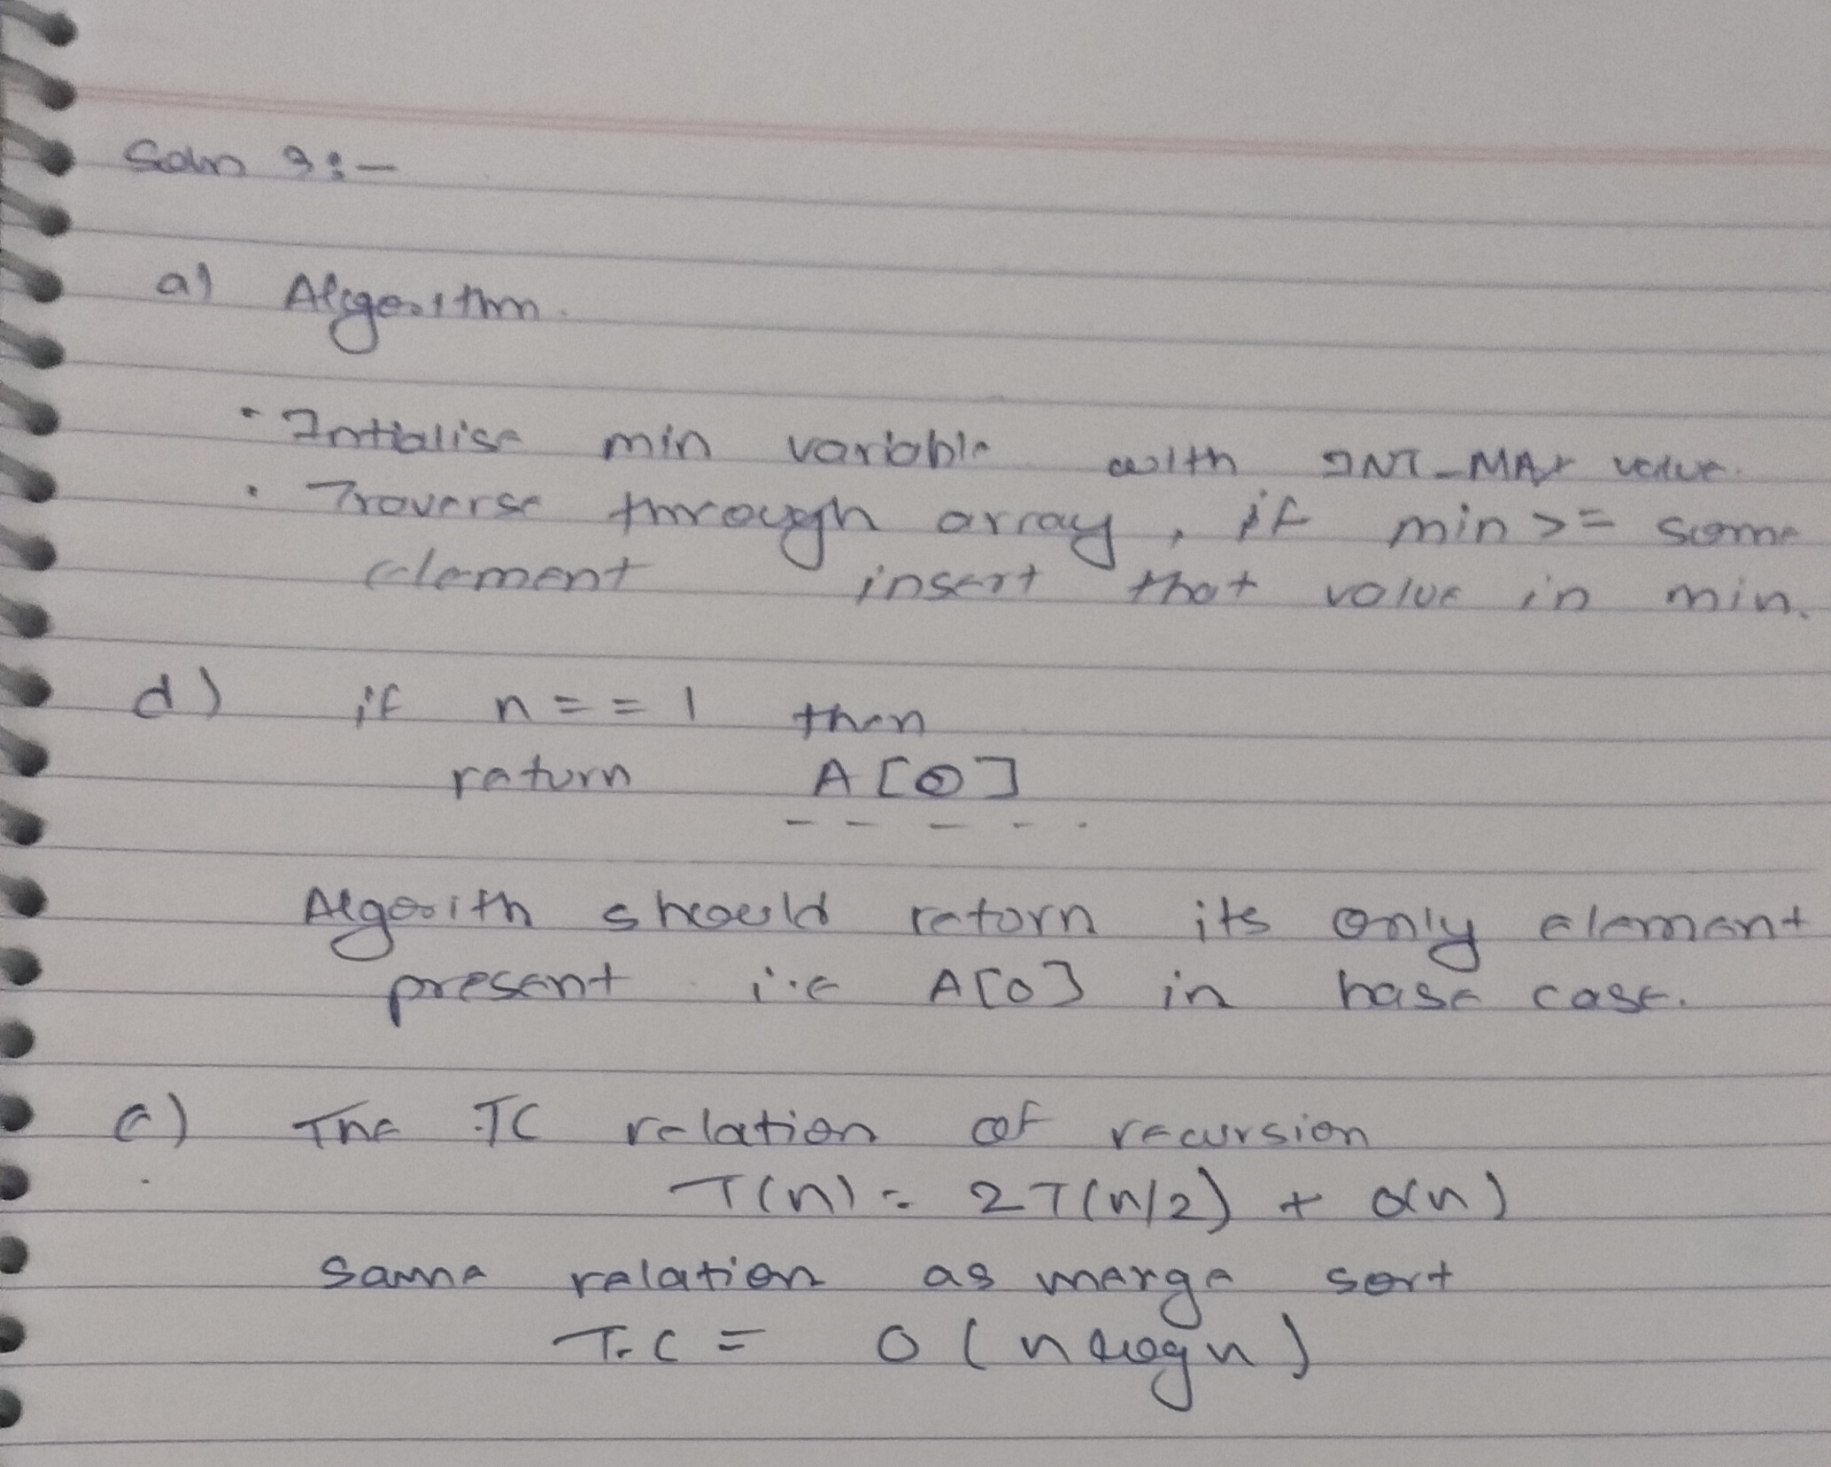 Soln 3:-
a) Algorithm.
• Intialise min variable with INT_MAX value.
• Traverse through array, if min >= some
element insert that value in min.
d) if n == 1 then
return A[0]
- - - - .
Algorith should return its only element
present i.e A[0] in base case.
e) The TC relation of recursion
T(n) = 2T(n/2) + O(n)
same relation as merge sort
T.C = O(nlogn)